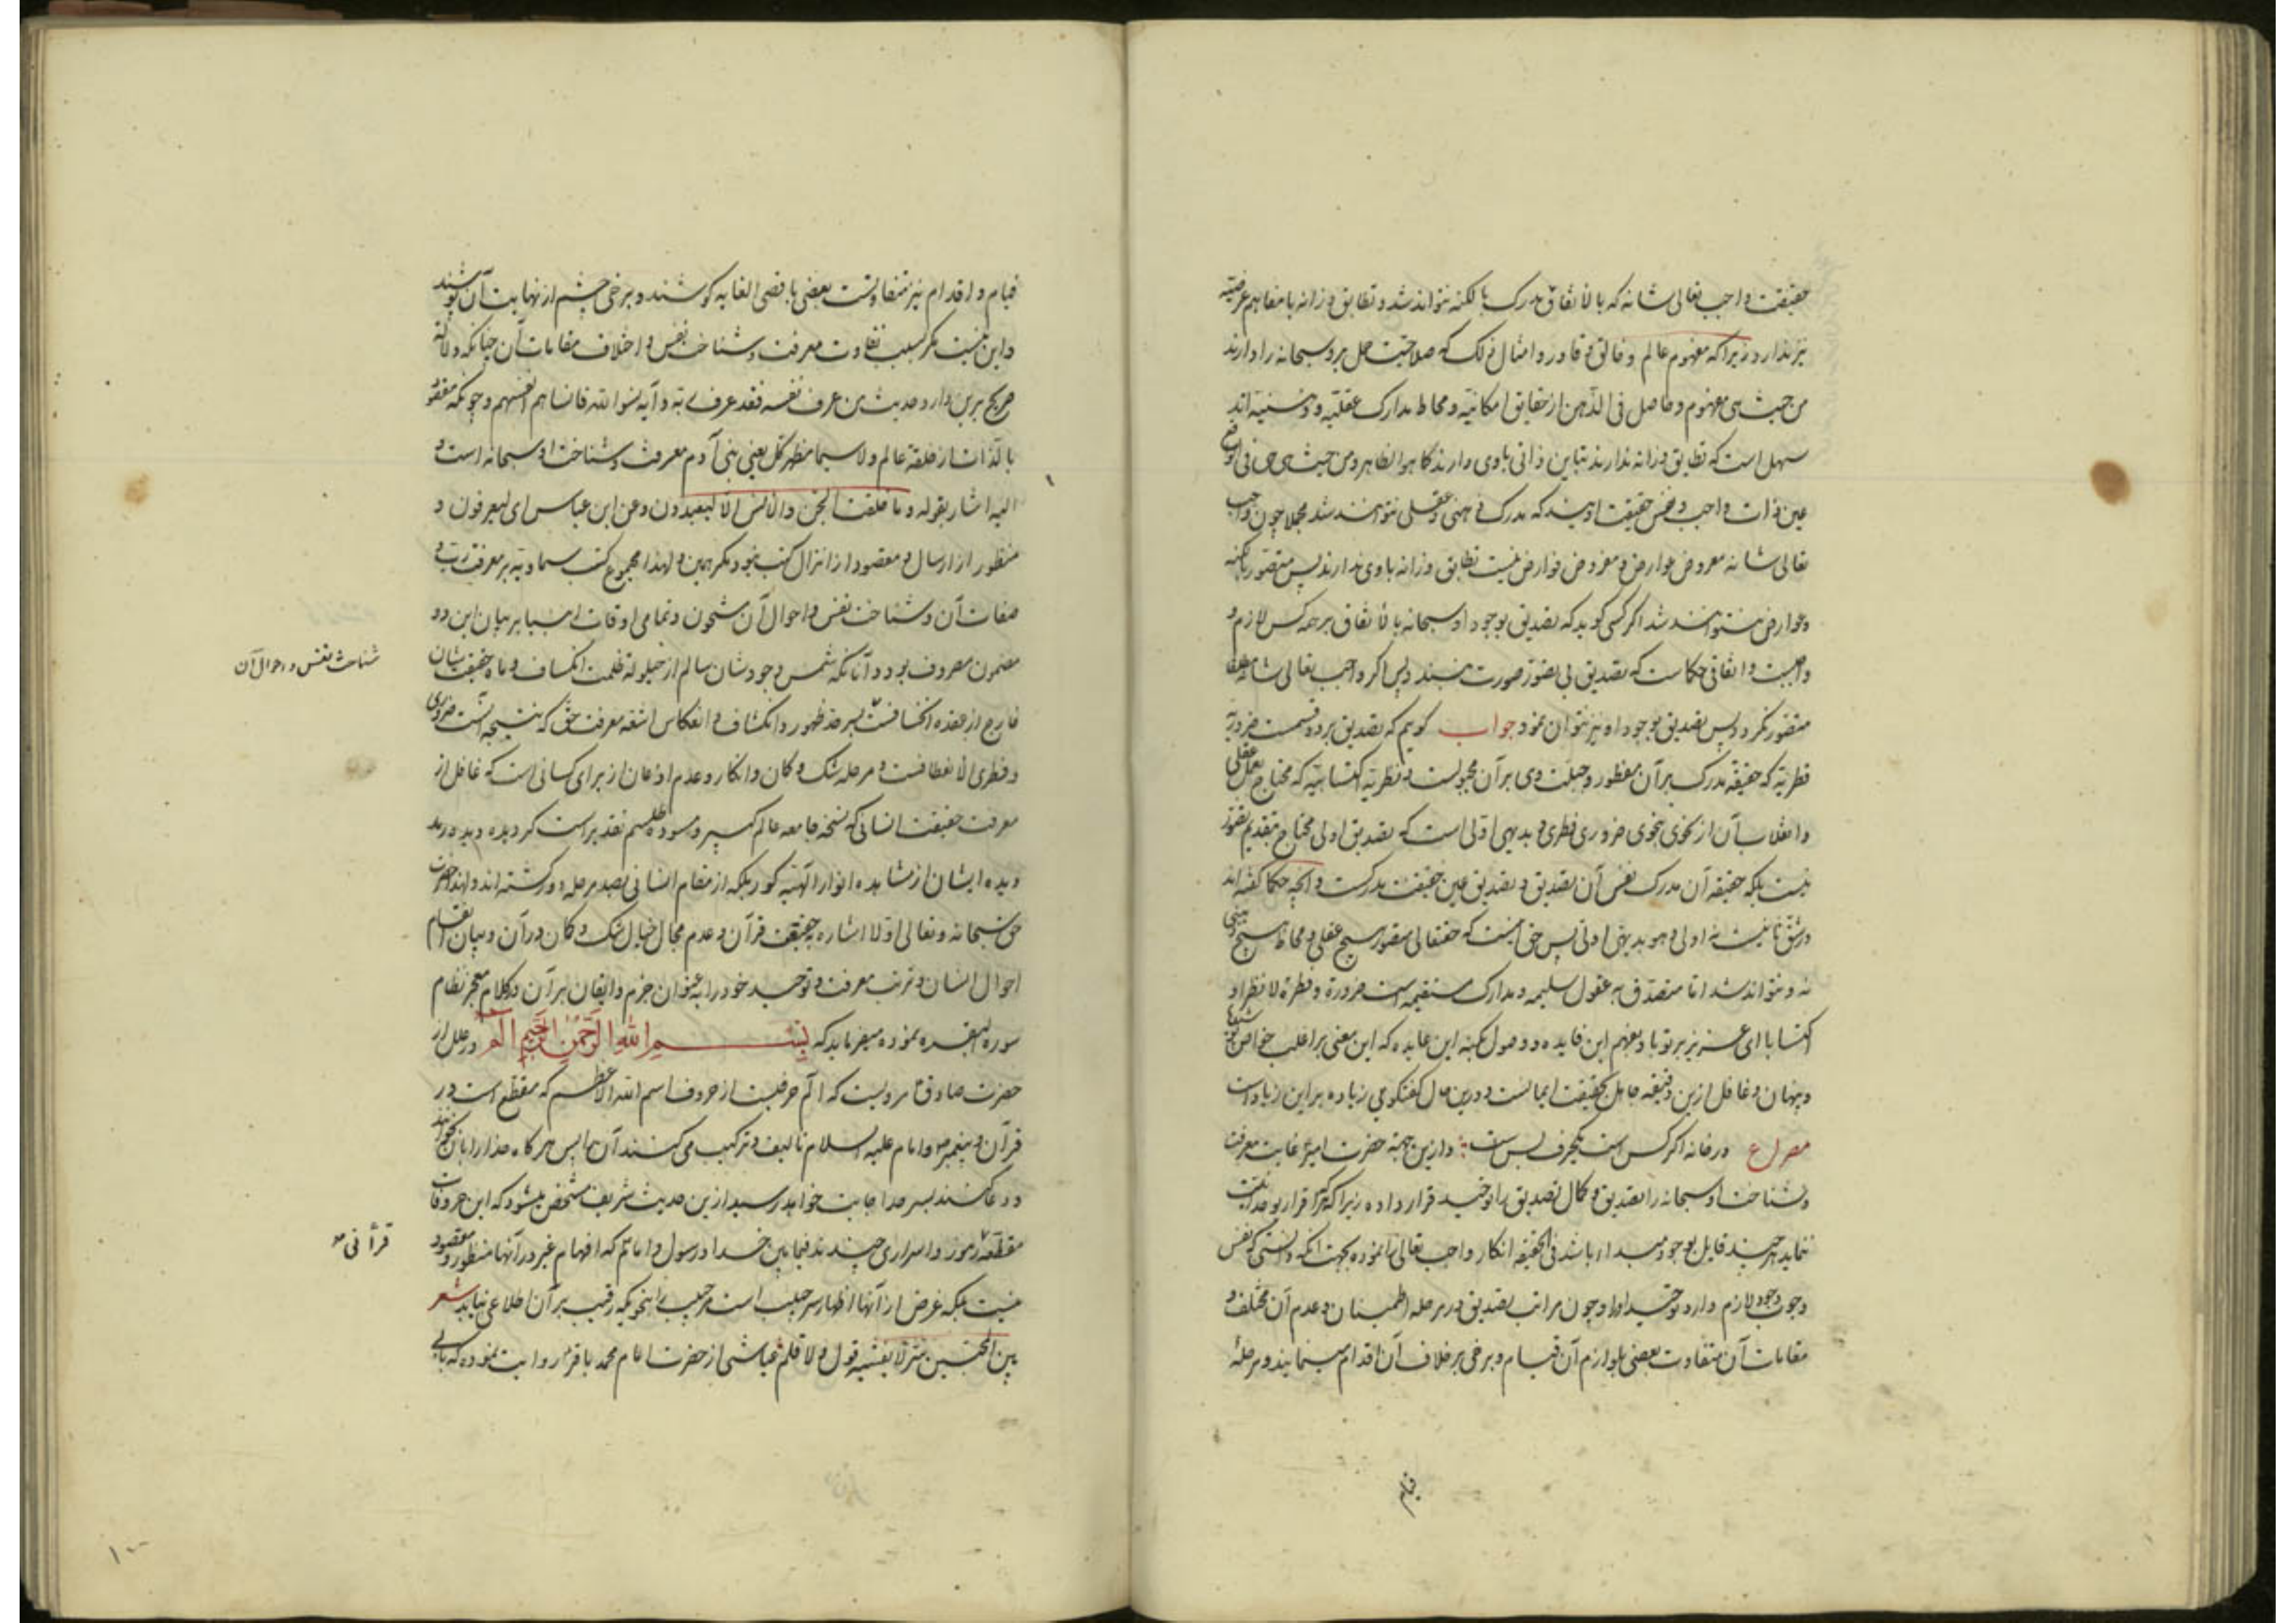 حقیقت واجب تعالی شانه که بالاتفاق مدرک بالکنه نتواند شد و تطابق وزانه با مفاهیم عرضیه
نیز ندارد زیرا که مفهوم عالم و خالق و قادر و امثال ذلک که صلاحیت حمل بر وسبحانه را دارند
من حیث هی مفهوم و حاصل فی الذهن از حقایق امکانیه و محاط مدارک عقلیه و ذهنیه اند
سهل است که تطابق وزانه ندارند تباین ذاتی باوی دارند کما هو الظاهر ومن حیث هی هی فی الواقع
عین ذات واجب و نفس حقیقت اویند که مدرک ذهنی و عقلی نتوانند شد مجملا چون واجب
تعالی شانه معروض عوارض و مفروض فوارض نیست تطابق وزانه باوی ندارند پس متصور بکنه
و عوارض نتوانند شد اگر کسی کوید که تصدیق بوجود او سبحانه بالاتفاق بر همه کس لازم و
واجبست و اتفاقی حکماست که تصدیق بی تصور صورت نبندد پس اکر واجب تعالی شانه مطلقا
متصور نکردد پس تصدیق بوجود او نیز نتوان نمود جواب کویم که تصدیق بر دو قسمست ضروریه
فطریه که حقیقة مدرک بر آن مفطور و جبلت وی بر آن مجبولست و نظریه اکتسابیه که محتاج بعمل عقلی
و انقلاب آن از نحوی بنحوی ضروری فطری و بدیهی اولی است که تصدیق اولی محتاج بتقدیم تصور
نیست بلکه حقیقه آن مدرک نفس آن تصدیق و تصدیق عین حقیقت مدرکست و آنچه حکما کفته اند
در شق ثانیست نه اولی و هو بدیهی اولی پس حق اینست که حقتعالی متصور هیچ عقلی و محاط هیچ ذهنی
نه و نتواند شد اما متصدق به عقول سلیمه و مدارک مستقیمه است ضرورة و فطرة لا نظرا و
اکتسابا ای عزیز بر تو باد بفهم این فایده و وصول بکنه این عایده که این معنی بر اغلب خواص
و پنهان و غافل ازین دقیقه جاهل بحقیقت ایمانست و درین حال کفتکوی زیاده بر این زیاد است
مصراع در خانه اکر کس است یکحرف بس است وازین جهة حضرت امیر غایت معرفت
و شناخت او سبحانه را تصدیق و کمال تصدیق را توحید قرار داده زیرا که اکر اقرار بوحدانیت
ننماید هر چند قایل بوجود مبداء باشد فی الحقیقه انکار واجب تعالی را نموده بجهت آنکه دانستی که نفس
وجوب وجود لازم دارد توحید او را و چون مراتب تصدیق در مرحله اطمینان و عدم آن مختلف و
مقامات آن متفاوت بعضی بلوازم آن قیام و برخی بر خلاف آن اقدام مینمایند و مرحلهٔ
قیام
قیام و اقدام نیز متفاوتست بعضی باقصی الغایه کوشند و برخی چشم از نهایت آن پوشند
و این نیست مکر بسبب تفاوت معرفت و شناخت نفس و اختلاف مقامات آن چنانکه دلالة
صریح برین دارد حدیث من عرف نفسه فقد عرف ربه و آیه نسوا الله فانساهم انفسهم و چونکه مقصود
بالذات از خلقة عالم ولا سیما مظهر کل یعنی بنی آدم معرفت و شناخت او سبحانه است و
الیه اشار بقوله وما خلقت الجن والانس الا لیعبدون وعن ابن عباس ای لیعرفون و
منظور از ارسال و مقصود از انزال کتب نبود مکر همین و لهذا مجموع کتب سماویه بر معرفت رب و
صفات آن و شناخت نفس و احوال آن مشحون و تمامی اوقات انبیا بر بیان این دو
مضمون مصروف بود و آنانکه شمس وجودشان سالم از حیلوله ظلمت انکساف و ماه حقیقتشان
شناخت نفس و احوال آن
خارج از عقده انخسافست بسر حد ظهور و انکشاف و انعکاس اشعه معرفت حق که نتیجه آنست ضروری
و فطری الانعطافست و مرحله شک و کمان و انکار و عدم اذعان از برای کسانی است که غافل از
معرفت حقیقت انسانی که نسخه جامعه عالم کبیر و مسوده طلسم تقدیر است کردیده و دیده
دیده ایشان از مشاهده انوار الهیه کور بلکه از مقام انسانی بصد مرحله دور کشته اند و لهذا حضرت
حق سبحانه و تعالی اولا اشاره بحقیقت قرآن و عدم مجال خیال شک و کمان در آن و بیان اقسام
احوال انسان و ترتب معرفت و توحید خود را بعنوان جزم و ایقان بر آن در کلام معجز نظام
سوره البقره نموده میفرماید که بسم الله الرحمن الرحیم الم در علل از
حضرت صادق مرویست که الم حرفیست از حروف اسم الله الاعظم که مقطع است در
قرآن و پیغمبر و امام علیه السلام تالیف و ترکیب می کنند آن را پس هر کاه خدا را بآن بخوانند
و دعا کنند بسر حد اجابت خواهد رسید ازین حدیث شریف مشخص میشود که این حروفات
مقطعه رموز و اسراری چندند فیمابین خدا و رسول و امام که افهام غیر در آنها منظور و مقصود
قرآنی
نیست بلکه غرض از آنها اظهار سر حبیب است مر حبیب را بنحویکه رقیب بر آن اطلاعی نیابد شعر
بین المحبین سر لا یفشیه قول ولا قلم عیاشی از حضرت امام محمد باقر روایت نموده که